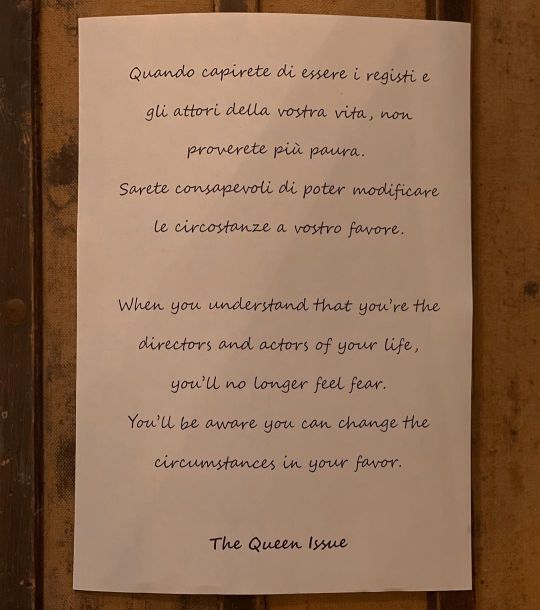 Quando capirete di essere i registi e
gli attori della vostra vita, non
proverete più paura.
Sarete consapevoli di poter modificare
le circostanze a vostro favore.
When you understand that you're the
directors and actors of your life,
you'll no longer feel fear.
You'll be aware you can change the
circumstances in your favor.
The Queen Issue